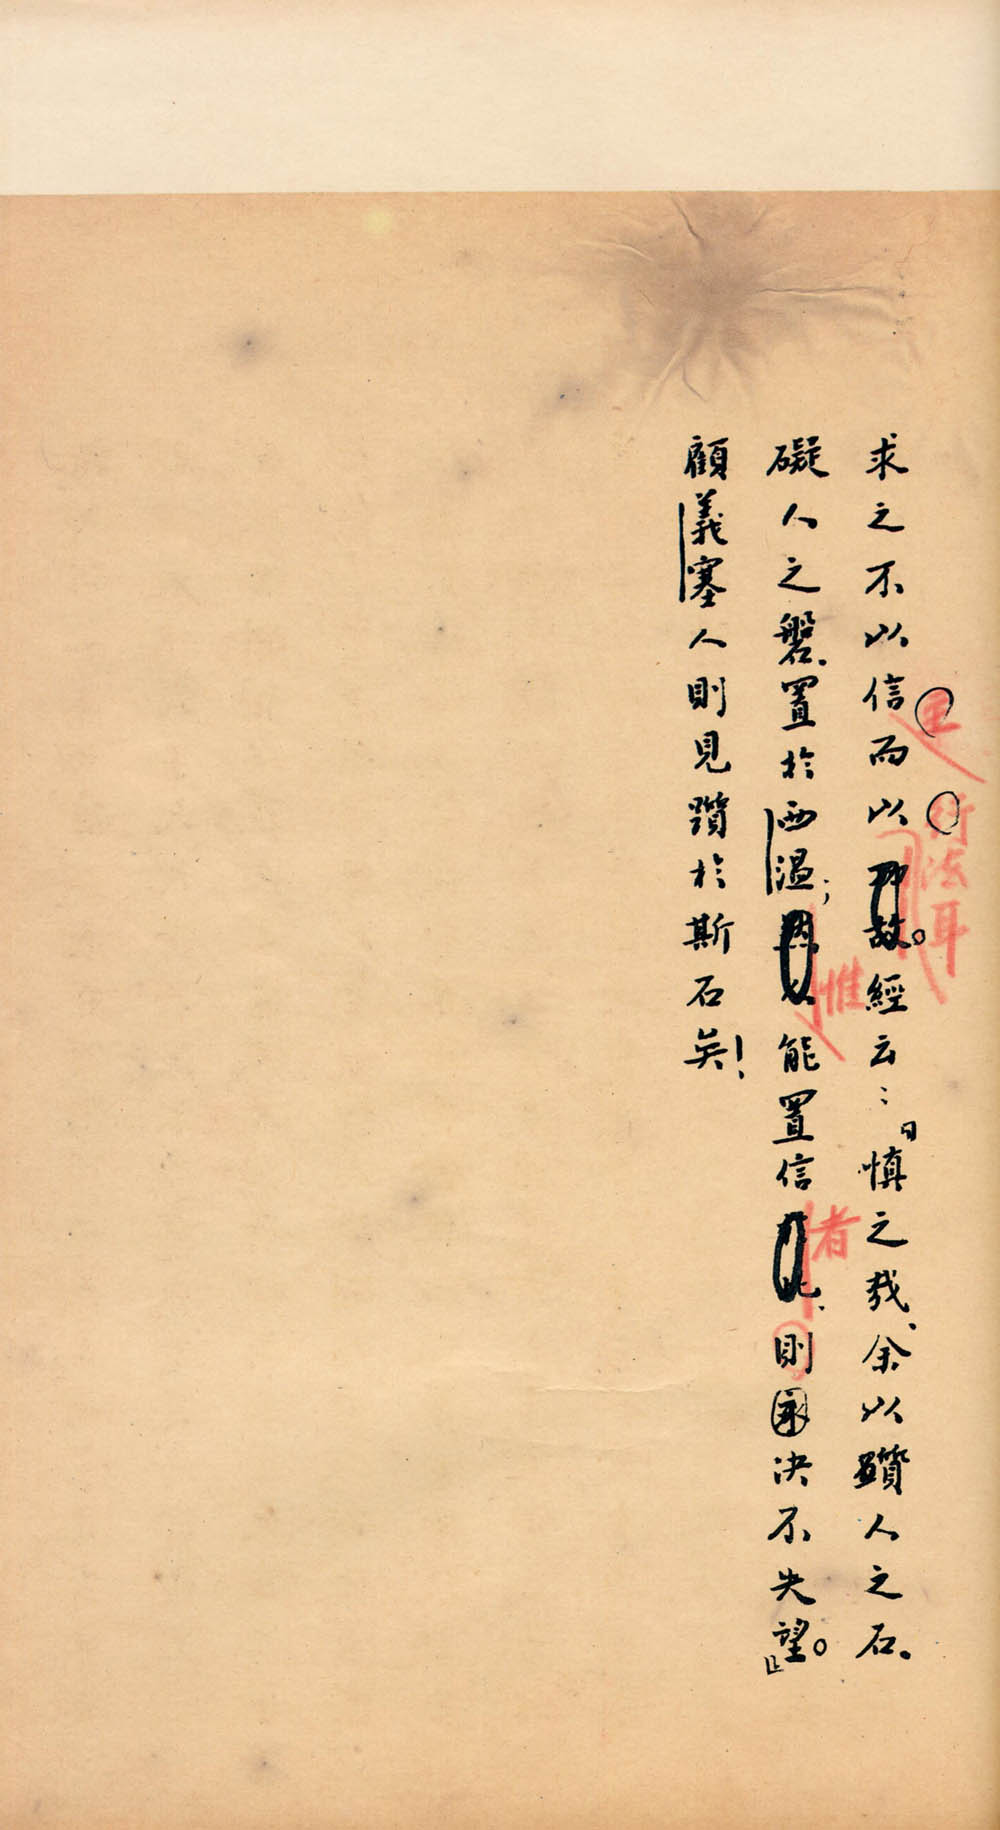 求之不以信而以行法耳。經云:「慎之哉、余以躓人之石。
礙人之磐、置於西溫;惟能置信者、則決不失望。」
顧義塞人則見躓於斯石矣!